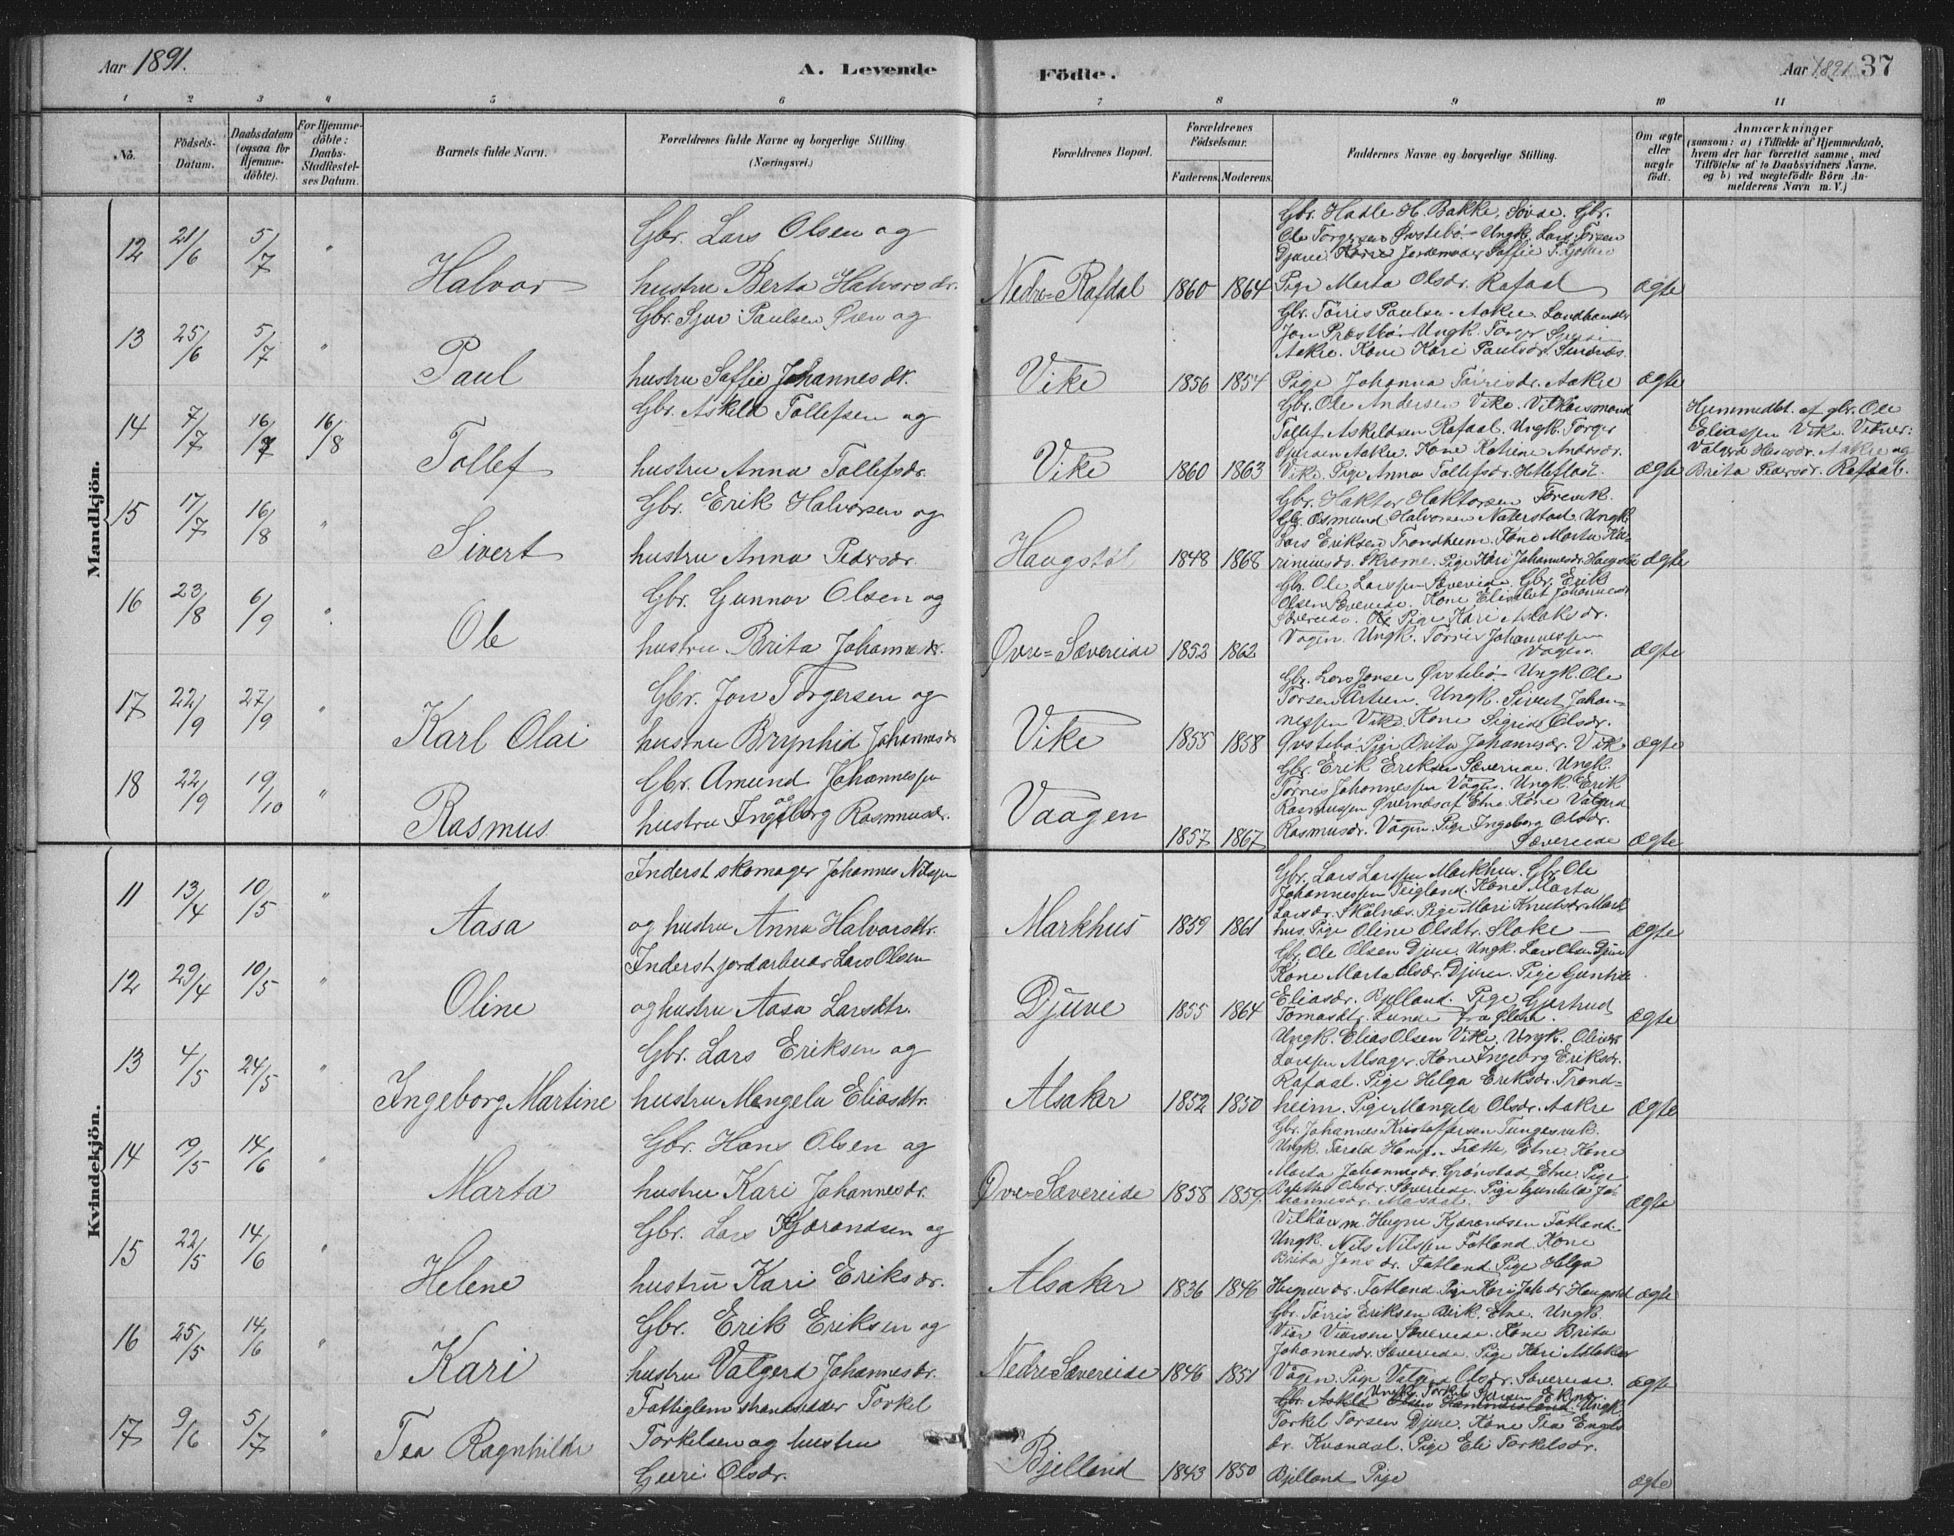 Aar 1891.
A. Levende Födte.
Aar 1891 37
1 2 3 4 5 6 7 8 9 10 11
No.
Födsels-Datum.
Daabsdatum (ogsaa for Hjemme-döbte).
For Hjemme-döbte: Daabs-Stadfestelses Datum.
Barnets fulde Navn.
Forældrenes fulde Navne og borgerlige Stilling. (Næringsvei.)
Forældrenes Bopæl.
Forældrenes Födselsaar.
Faderens. Moderens.
Faddernes Navne og borgerlige Stilling.
Om ægte eller uægte födt.
Anmærkninger
(saasom: a) i Tilfælde af Hjemmedaab,
hvem der har forrettet samme, med
Tilföielse af to Daabsvidners Navne.
og b) ved uægtefödte Börn An-
melderens Navn m. V.)
Mandkjön.
12 21/6 5/7 " Halvor
Gbr. Lars Olsen og
hustru Berta Halvorsdr.
Nedre=Rafdal 1860 1864
Gbr. Hadle H. Bakke, Søvde. Gbr.
Ole Torgersen Øvstebö. Ungk. Lars
Pige Marta Olsdr. Rafdal
ægte
13 25/6 5/7 " Paul
Gbr. Sjur Paulsen og
hustru Saffie Johannesdr.
Vike 1856 1854
Gbr. Tørris Paulsen Aakre. Landhandler
Jon Ungk. Torger
Aakre. Kone Kari Paulsdr.
Pige Johanna Torrisdr. Aakre
ægte
14 7/7 16/7 16/8 Tollef
Gbr. Askild Tollefsen og
hustru Anna Tollefsdr.
Vike 1860 1863
Gbr. Ole Andersen Vike. Vilkarsmand
Tollef Askildsen Rafdal. Ungk. Torger
Aakre. Kone Katrine Andersdr.
Vike. Pige Anna Tollefsdr.
ægte
Hjemmedbt. af gbr. Ole
Eliassen Vike. Vidner:
Valgerd Aakre og
Brita Pedersdr. Rafdal.
15 17/7 16/8 " Sivert
Gbr. Erik Halvorsen og
hustru Anna Pedersdr.
Haugstøl 1848 1868
Gbr. Haktor Haktorsen
Gbr. Osmund Halvorsen Naterstad. Ungk.
Lars Eriksen Trondheim. Kone Marta Ka-
rinusdr. Skrome. Pige Kari Johannesdr.
ægte
16 23/8 6/9 " Ole
Gbr. Gunnar Olsen og
hustru Brita Johannesdr.
Øvre=Sævereide 1852 1862
Gbr. Ole Larssen Sævereide. Gbr. Erik
Olsen Sævereide. Kone Elisabet Johannesdr.
Sævereide. Pige Kari Aslaksdr.
Vågen. Ungk. Torris Johannessen
Vågen.
ægte
17 22/9 27/9 " Karl Olai
Gbr. Jon Torgersen og
hustru Brynhid Johannesdr.
Vike 1855 1858
Gbr. Lars Jonsen Øvstebö Ungk. Ole
Torsen Ungk. Sivert Johan-
nessen Vike. Kone Sigrid Olsdr.
Øvstebö. Pige Brita Johannesdr. Vik
ægte
18 22/9 19/10 " Rasmus
Gbr. Amund Johannessen
hustru Ingeborg Rasmusdr.
Vaagen 1857 1867
Gbr. Erik Eriksen Sævereide. Ungk.
Torris Johannessen Vågen. Ungk. Erik
Rasmussen Øvernæs af Etne. Kone Valgerd
Rasmusdr. Vågen. Pige Ingeborg Olsdr.
Sævereide
ægte
Kvindekjön.
11 13/4 10/5 " Aasa
Inderst skomager Johannes Nilssen
og hustru Anna Halvorsdtr.
Markhus 1859 1861
Gbr. Lars Larssen Markhus. Gbr. Ole
Johannessen Teigland. Kone Marta
Larsdr. Skålnæs. Pige Mari Knutsdr. Mark
hus. Pige Oline Olsdtr. Sloke
ægte
12 29/4 10/5 " Oline
Inderst jordarbeider Lars Olsen
og hustru Aasa Larsdtr.
Djuve 1855 1864
Gbr. Ole Olsen Djuve. Ungk. Lars Olsen Djuve
Kone Marta Olsdr. Djuve. Pige Gunhilde
Eliasdr. Bjelland. Pige Gjertrud
Tomasdtr. Lunde
ægte
13 4/5 24/5 " Ingeborg Martine
Gbr. Lars Eriksen og
hustru Mangela Eliasdtr.
Alsaker 1852 1850
Ungk. Elias Olsen Vike. Ungk. Oliver
Larssen Alsager. Kone Ingeborg Eriksdr.
Rafdal. Pige Helga Eriksdr. Trond=
heim. Pige Mangela Olsdr. Aakre
ægte
14 19/5 14/6 " Marta
Gbr. Hans Olsen og
hustru Kari Johannesdr.
Øvre=Sævereide 1858 1859
Gbr. Johannes Kristoffersen Tungesvik.
Ungk. Tørald Hansen Trætte, Etne. Kone
Marta Johannesdr. Grønstad Etne. Pige
Olsdr. Sævereide. Pige Gunhild Jo-
hannesdr.
ægte
15 22/5 14/6 " Helene
Gbr. Lars Kjorandsen og
hustru Kari Eriksdr.
Alsaker 1836 1846
Vilkårsm Hugne Kjorandsen Fatland.
Ungk. Nils Nilssen Fatland. Kone
Brita Jonsdr. Fatland. Pige Helga
Hugnesdr. Fatland. Pige Kari
ægte
16 25/5 14/6 " Kari
Gbr. Erik Eriksen og
hustru Valgerd Johannesdr.
Nedre Sævereide 1846 1851
Gbr. Tørris Eriksen Etne. Ungk.
Sævereide. Kone Brita
Johannesdr. Sævereide. Pige Kari
Vågen. Pige Valgerd Olsdr. Sævereide
ægte
17 9/6 5/7 " Tea Ragnhilde
Fattiglem strandsidder Torkel
Torkelsen og hustru
Guri Olsdr.
Bjelland 1843 1850
Gbr. Askild Ungk.
Torkel Torsen Djuve. Kone Tea
dr. Kvandal. Pige Eli Torkelsdr.
Bjelland Pige
ægte